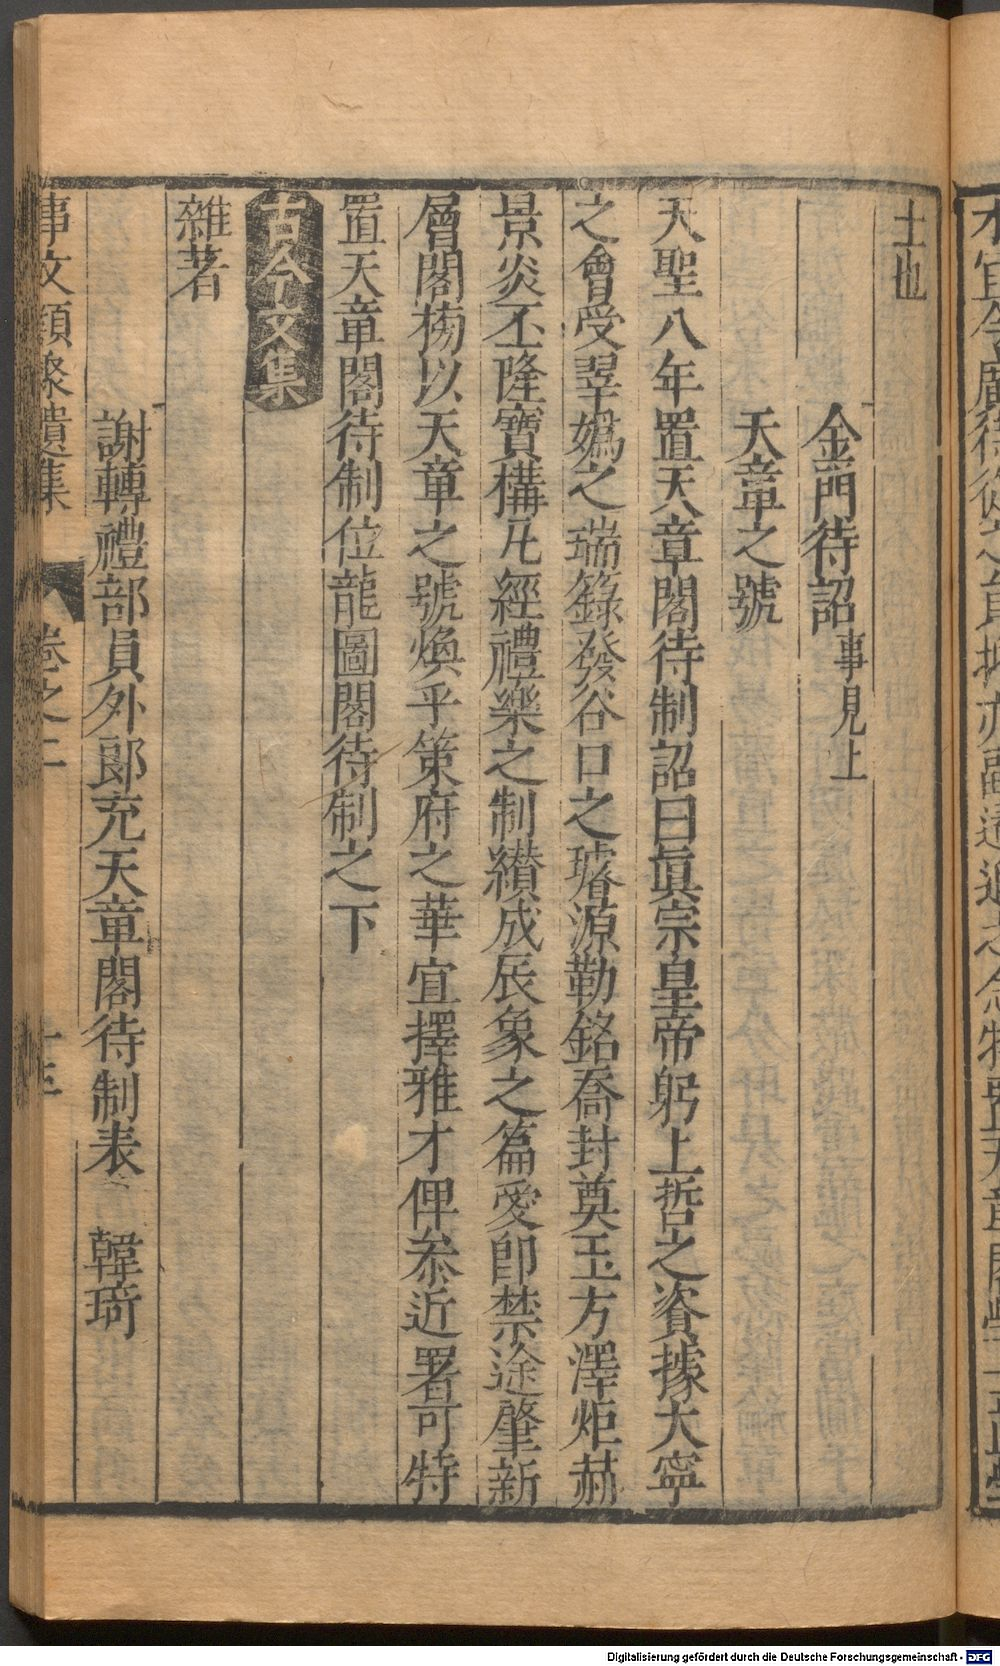 士也
金門待詔 事見上
天章之號
天聖八年置天章閣待制詔曰眞宗皇帝躬上哲之資據大寧
之會受翠嬀之瑞籙發谷口之璿源勒銘喬封奠玉方澤炬赫
景炎丕隆寶構凡經禮樂之制纘成辰象之篇爰卽禁途肇新
層閣榜以天章之號煥乎策府之華宜擇雅才俾叅近署可特
置天章閣待制位龍圖閣待制之下
古今文集
雜著
謝轉禮部員外郞充天章閣待制表 韓琦
事文類聚遺集 卷之二
Digitalisierung gefördert durch die Deutsche Forschungsgemeinschaft - DFG